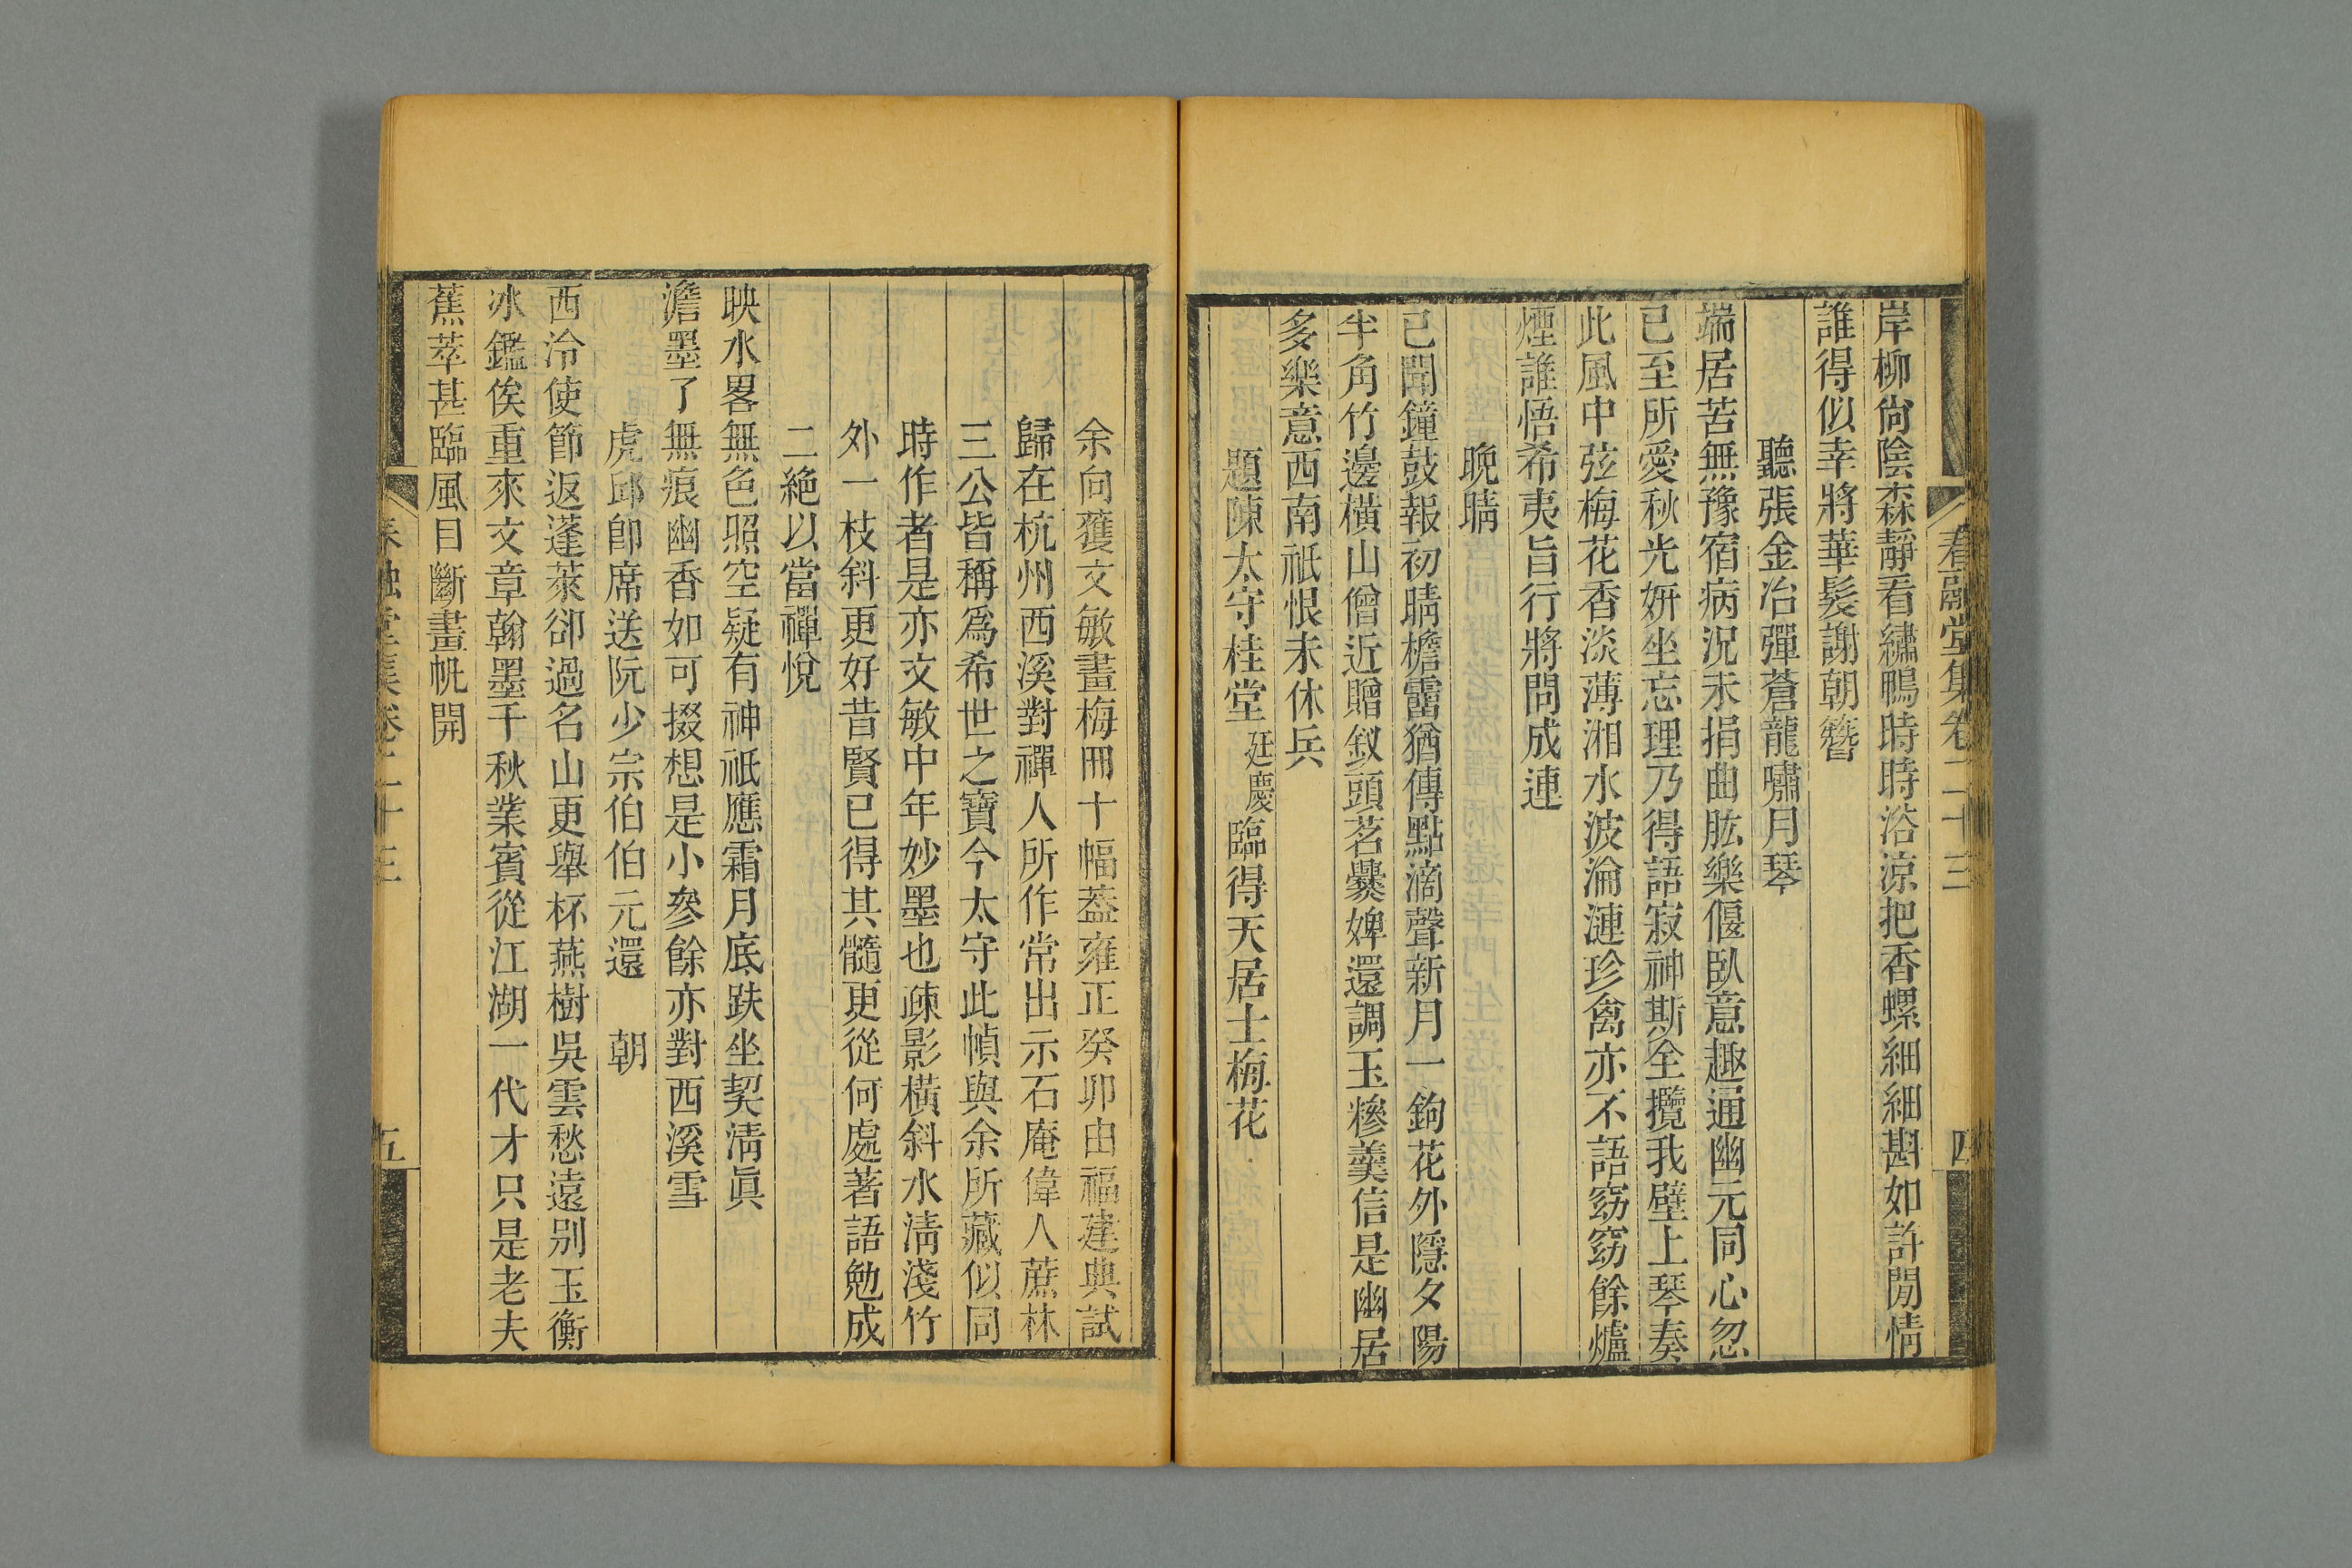 春融堂集卷二十三
四
岸柳尙陰森靜看繡鴨時時浴涼把香螺細細斟如許閒情
誰得似幸將華髮謝朝簪
聽張金冶彈蒼龍嘯月琴
端居苦無豫宿病況未捐曲肱樂偃臥意趣通幽元同心忽
已至所愛秋光妍坐忘理乃得語寂神斯全攬我壁上琴奏
此風中弦梅花香淡薄湘水波淪漣珍禽亦不語窈窈餘爐
煙誰悟希夷旨行將問成連
晚晴
已聞鐘鼓報初晴檐霤猶傳點滴聲新月一鉤花外隱夕陽
半角竹邊橫山僧近贈釵頭茗爨婢還調玉糝羹信是幽居
多樂意西南祇恨未休兵
題陳太守桂堂廷慶臨得天居士梅花
余向獲文敏畫梅冊十幅葢雍正癸卯由福建典試
歸在杭州西溪對禪人所作常出示石庵偉人蔗林
三公皆稱爲希世之寶今太守此幀與余所藏似同
時作者是亦文敏中年妙墨也疎影橫斜水淸淺竹
外一枝斜更好昔賢已得其髓更從何處著語勉成
二絶以當禪悅
映水畧無色照空疑有神祇應霜月底趺坐契淸眞
澹墨了無痕幽香如可掇想是小參餘亦對西溪雪
虎邱卽席送阮少宗伯伯元還　朝
西泠使節返蓬萊卻過名山更舉杯燕樹吳雲愁遠別玉衡
冰鑑俟重來文章翰墨千秋業賓從江湖一代才只是老夫
蕉萃甚臨風目斷畫帆開
春融堂集卷二十三
五